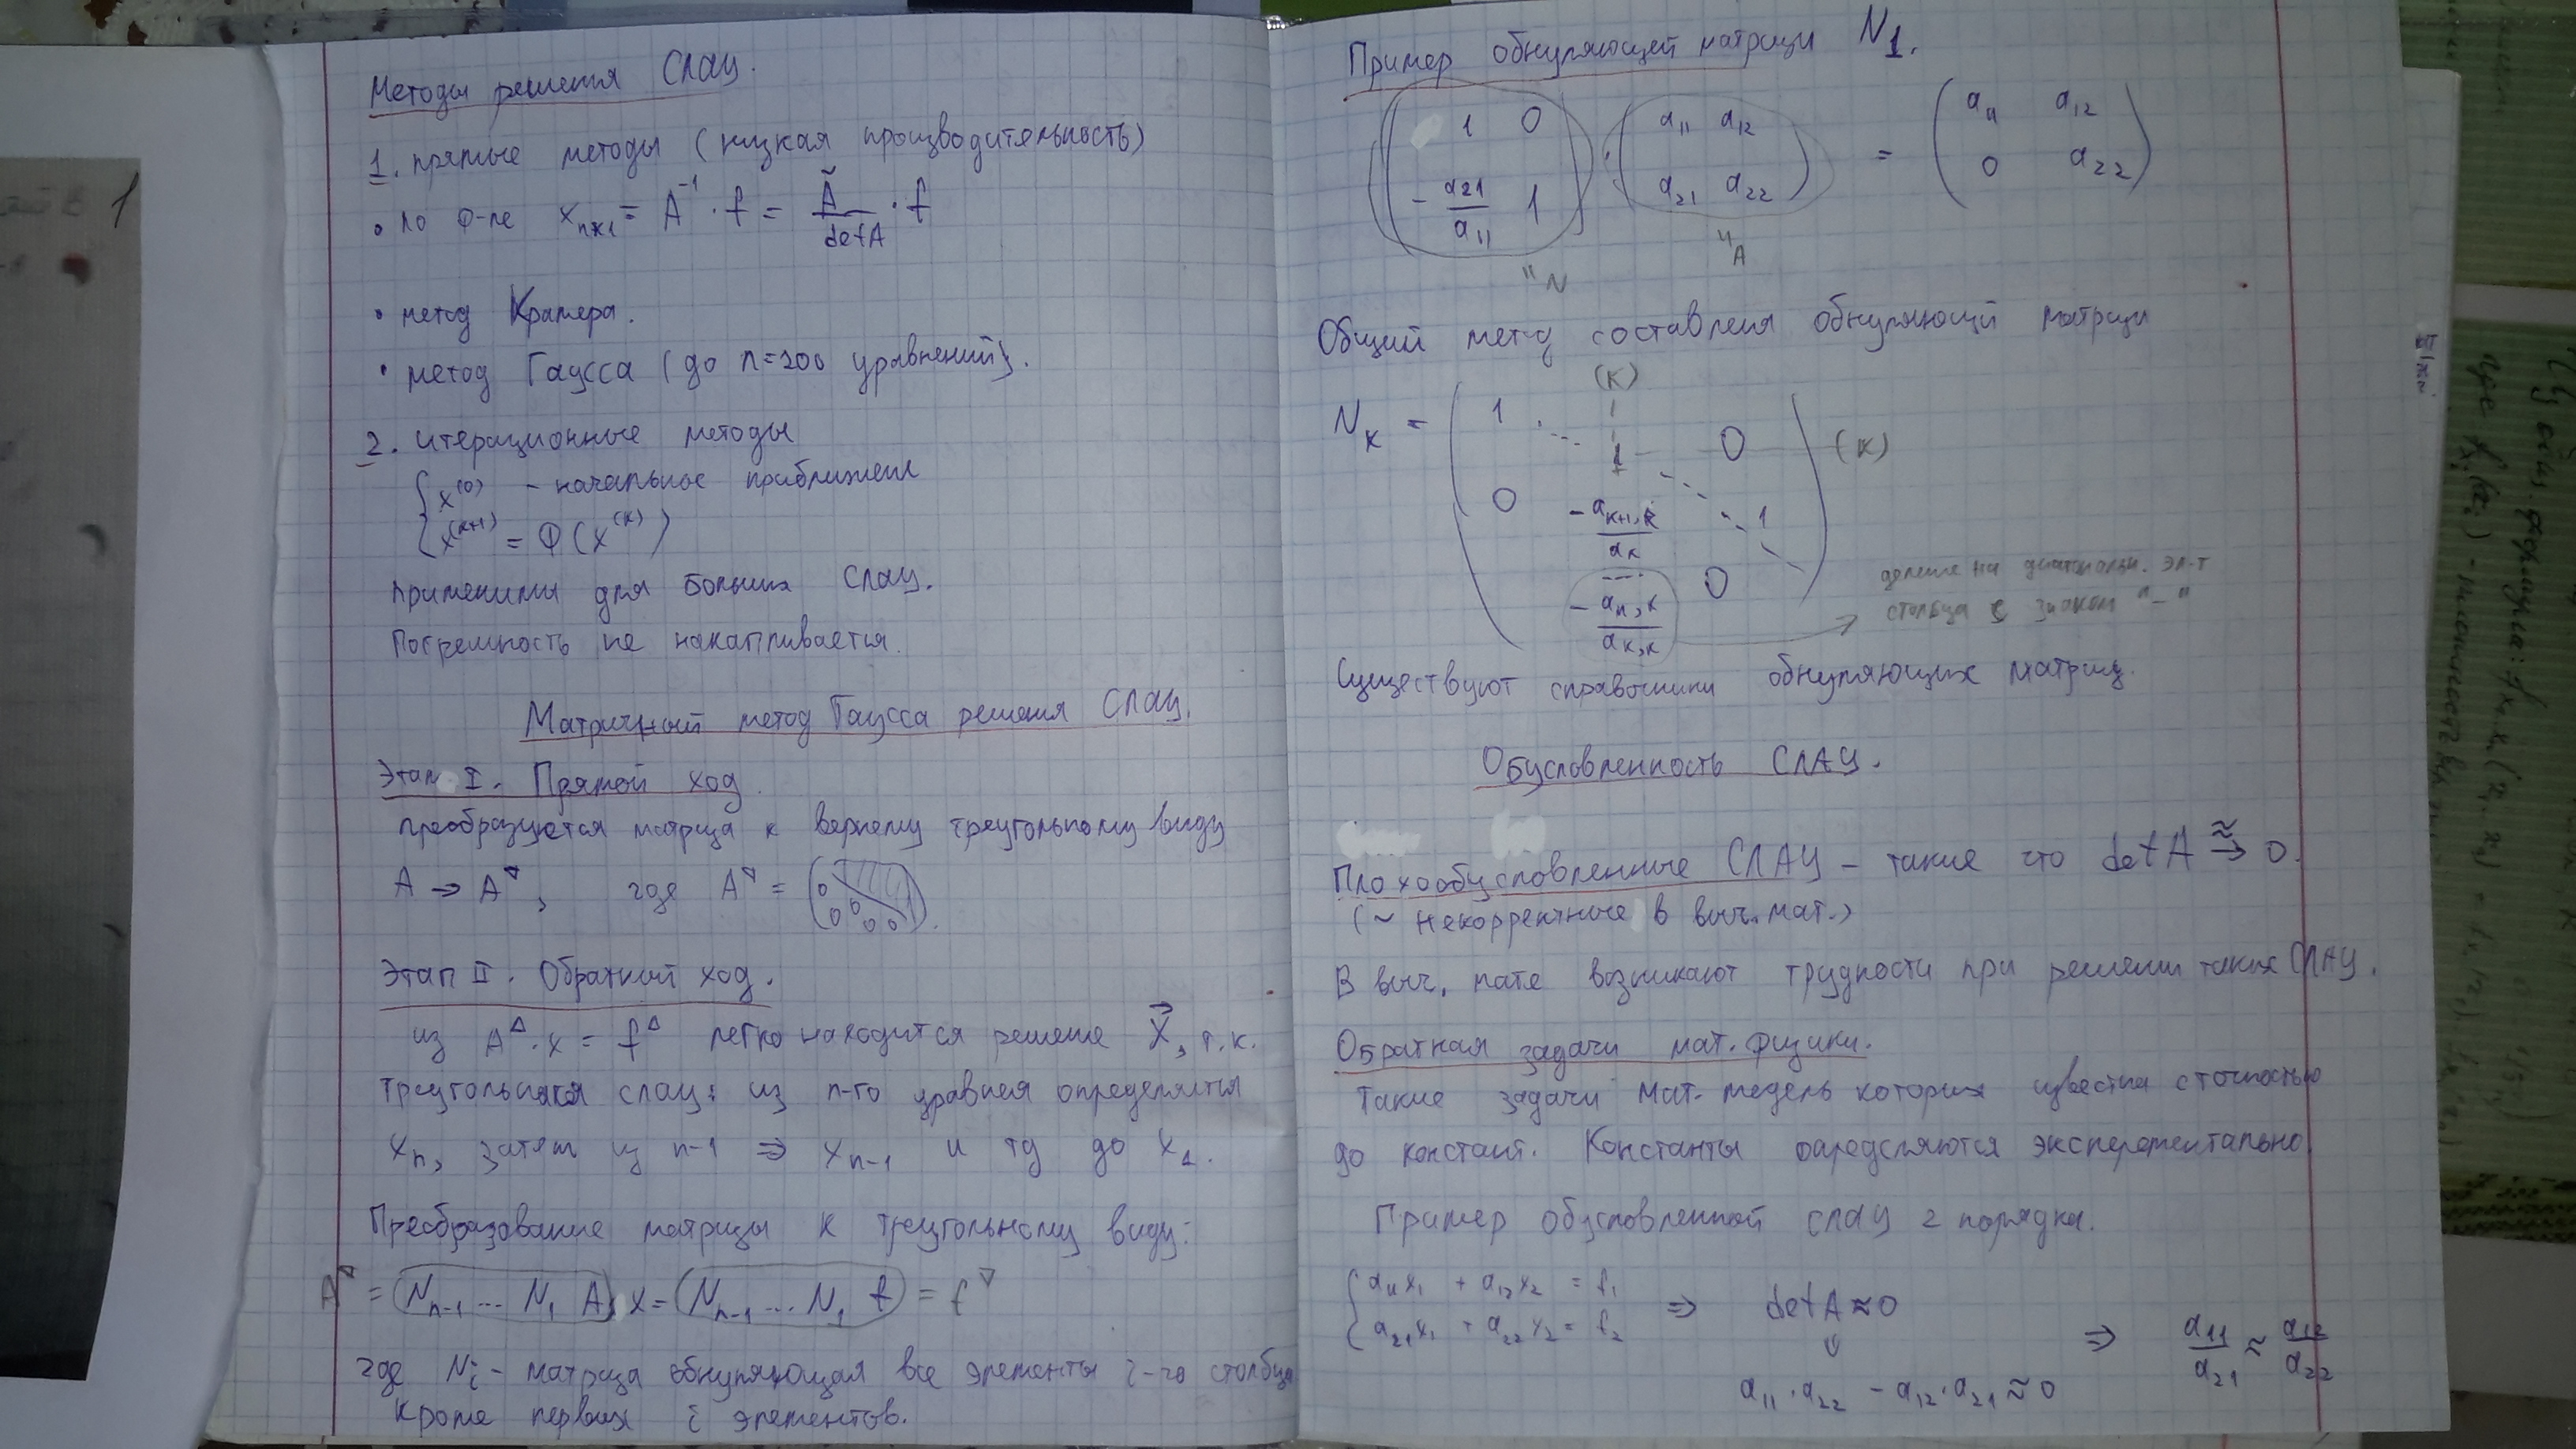 Методы решения СЛАУ.
1. прямые методы (низкая производительность)
• по ф-ле x = A⁻¹ · f = Ã / det A · f
• метод Крамера.
• метод Гаусса (до n=200 уравнений).
2. итерационные методы
{ x⁽⁰⁾ - начальное приближение
x⁽ᵏ⁺¹⁾ = Ф(x⁽ᵏ⁾)
применимы для больших СЛАУ.
Погрешность не накапливается.
Матричный метод Гаусса решения СЛАУ.
Этап I. Прямой ход.
преобразуется матрица к верхнему треугольному виду
A → A^∇, где A^∇ = ( 0 0 0 0 0 )
Этап II. Обратный ход.
из A^∇ · x = f^∇ легко находится решение x, т.к.
треугольная СЛАУ: из n-го уравнения определяется
xₙ, затем из n-1 ⇒ xₙ₋₁ и тд до x₁.
Преобразование матрицы к треугольному виду:
A^∇ = (Nₙ₋₁ ... N₁ A) x = (Nₙ₋₁ ... N₁ f) = f^∇
где Nᵢ - матрица обнуляющая все элементы i-го столбца
кроме первых i элементов.
Пример обнуляющей матрицы N₁.
( 1 0 ) · ( a₁₁ a₁₂ ) = ( a₁₁ a₁₂ )
( -a₂₁/a₁₁ 1 ) ( a₂₁ a₂₂ ) ( 0 a₂₂ )
"N "A
Общий метод составления обнуляющей матрицы
(k)
Nₖ = ( 1 0 ) (k)
1
0 -aₖ₊₁,ₖ/aₖ 1
-aₙ,ₖ/aₖ,ₖ 0
деление на диагональн. эл-т
столбца с знаком "-"
Существуют справочники обнуляющих матриц.
Обусловленность СЛАУ.
Плохообусловленные СЛАУ - такие что det A ≈→ 0.
(~ некорректные в выч. мат.)
В выч. мате возникают трудности при решении таких СЛАУ.
Обратная задачи мат. физики.
Такие задачи мат. модель которых известна с точностью
до констант. Константы определяются экспериментально
Пример обусловленной СЛАУ 2 порядка.
{ a₁₁x₁ + a₁₂x₂ = f₁
a₂₁x₁ + a₂₂x₂ = f₂ ⇒ det A ≈ 0
⇓
a₁₁·a₂₂ - a₁₂·a₂₁ ≈ 0 ⇒ a₁₁/a₂₁ ≈ a₁₂/a₂₂
формула:
где